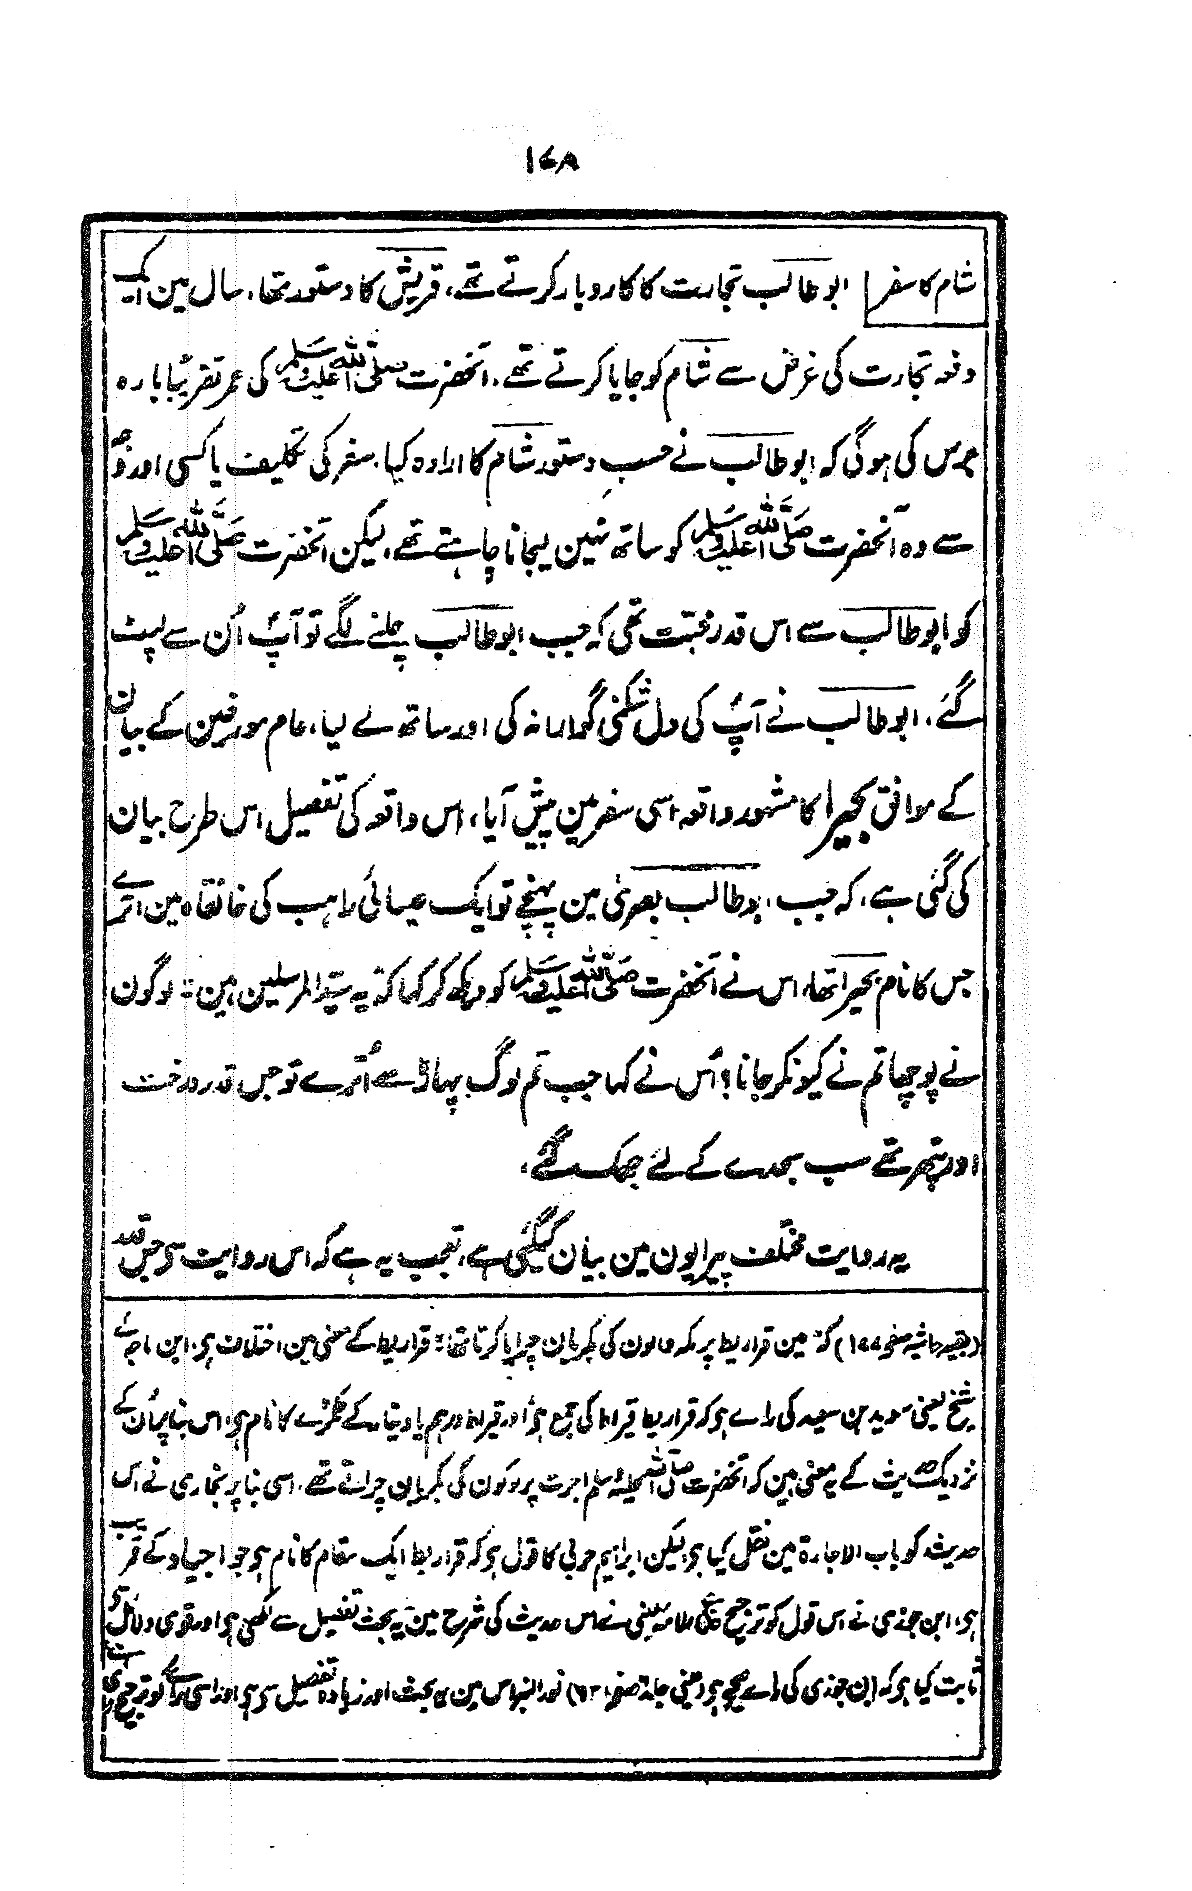 ۱۷۸
شام کا سفر ابوطالب تجارت کا کاروبار کرتے تھے، قریش کا دستور تھا، سال مین ایک
دفعہ تجارت کی غرض سے شام کو جایا کرتے تھے، آنحضرت صلی اللہ علیہ وسلم کی عمر تقریباً بارہ
برس کی ہوگی کہ ابوطالب نے حسب دستور شام کا ارادہ کیا، سفر کی تکلیف یا کسی اور وجہ
سے وہ آنحضرت صلی اللہ علیہ وسلم کو ساتھ نہین لیجانا چاہتے تھے، لیکن آنحضرت صلی اللہ علیہ وسلم
کو ابوطالب سے اس قدر محبت تھی کہ جب ابوطالب چلنے لگے تو آپؐ اُن سے لپٹ
گئے، ابوطالب نے آپؐ کی دل شکنی گوارا نہ کی اور ساتھ لے لیا، عام مورخین کے بیان
کے موافق بحیرا کا مشہور واقعہ اسی سفر مین پیش آیا، اس واقعہ کی تفصیل اس طرح بیان
کی گئی ہے، کہ جب ابوطالب بصریٰ مین پہنچے تو ایک عیسائی راہب کی خانقاہ مین اترے
جس کا نام بحیرا تھا، اس نے آنحضرت صلی اللہ علیہ وسلم کو دیکھ کر کہا کہ "یہ سید المرسلین ہین" لوگون
نے پوچھا تم نے کیونکر جانا؟ اُس نے کہا جب تم لوگ پہاڑ سے اُترے تو جس قدر درخت
اور پتھر تھے سب سجدے کے لئے جھک گئے،
یہ روایت مختلف پیرایون مین بیان کی گئی ہے، تعجب یہ ہے کہ اس روایت سے جس قدر
(بقیہ حاشیہ صفحہ ۱۷۷) کہ "مین قراریط پر مکہ والون کی بکریان چرایا کرتا تھا" قراریط کے معنی مین اختلاف ہی، ابن ماجہ کے
شیخ یعنی سوید بن سعید کی رائے ہی کہ قراریط قیراط کی جمع ہی اور قیراط درہم یا دینار کے ٹکڑے کا نام ہی، اس بنا پر اُن کے
نزدیک حدیث کے یہ معنی ہین کہ آنحضرت صلی اللہ علیہ وسلم اجرت پر لوگون کی بکریان چراتے تھے، اسی بنا پر بخاری نے اس
حدیث کو باب الاجارۃ مین نقل کیا ہی لیکن ابراہیم حربی کا قول ہی کہ قراریط ایک مقام کا نام ہی جو اجیاد کے قریب
ہی، ابن جوزی نے اس قول کو ترجیح دی علامہ عینی نے اس حدیث کی شرح مین یہ بحث تفصیل سے لکھی ہی اور قوی دلائل سے
ثابت کیا ہی کہ ابن جوزی کی رائے صحیح ہی (عینی جلد صفحہ) نور النبراس مین یہ بحث اور زیادہ تفصیل سے ہی اور اسی رائے کو ترجیح دی